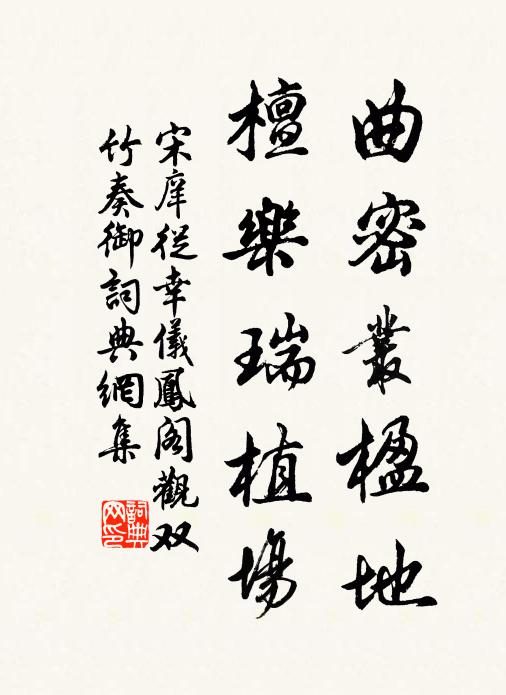 曲密叢楹地
檀樂瑞植場
宋庠從幸儀鳳閣觀双
竹奏御詞典網集
詞典网印